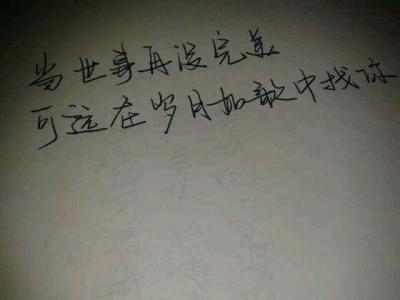 当世事再没完美
可远在岁月如歌中找你